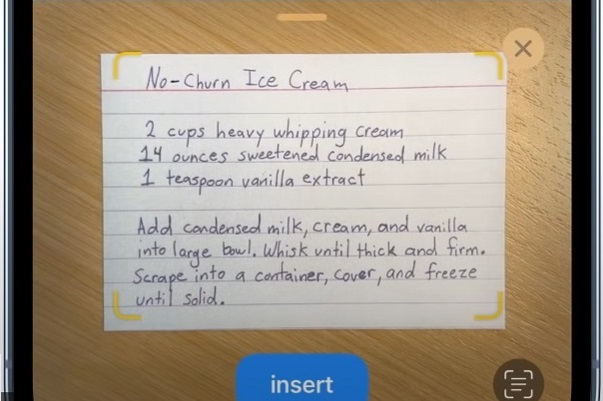 No-Churn Ice Cream
2 cups heavy whipping cream
14 ounces sweetened condensed milk
1 teaspoon vanilla extract
Add condensed milk, cream, and vanilla
into large bowl. Whisk until thick and firm.
Scrape into a container, cover, and freeze
until solid.
insert